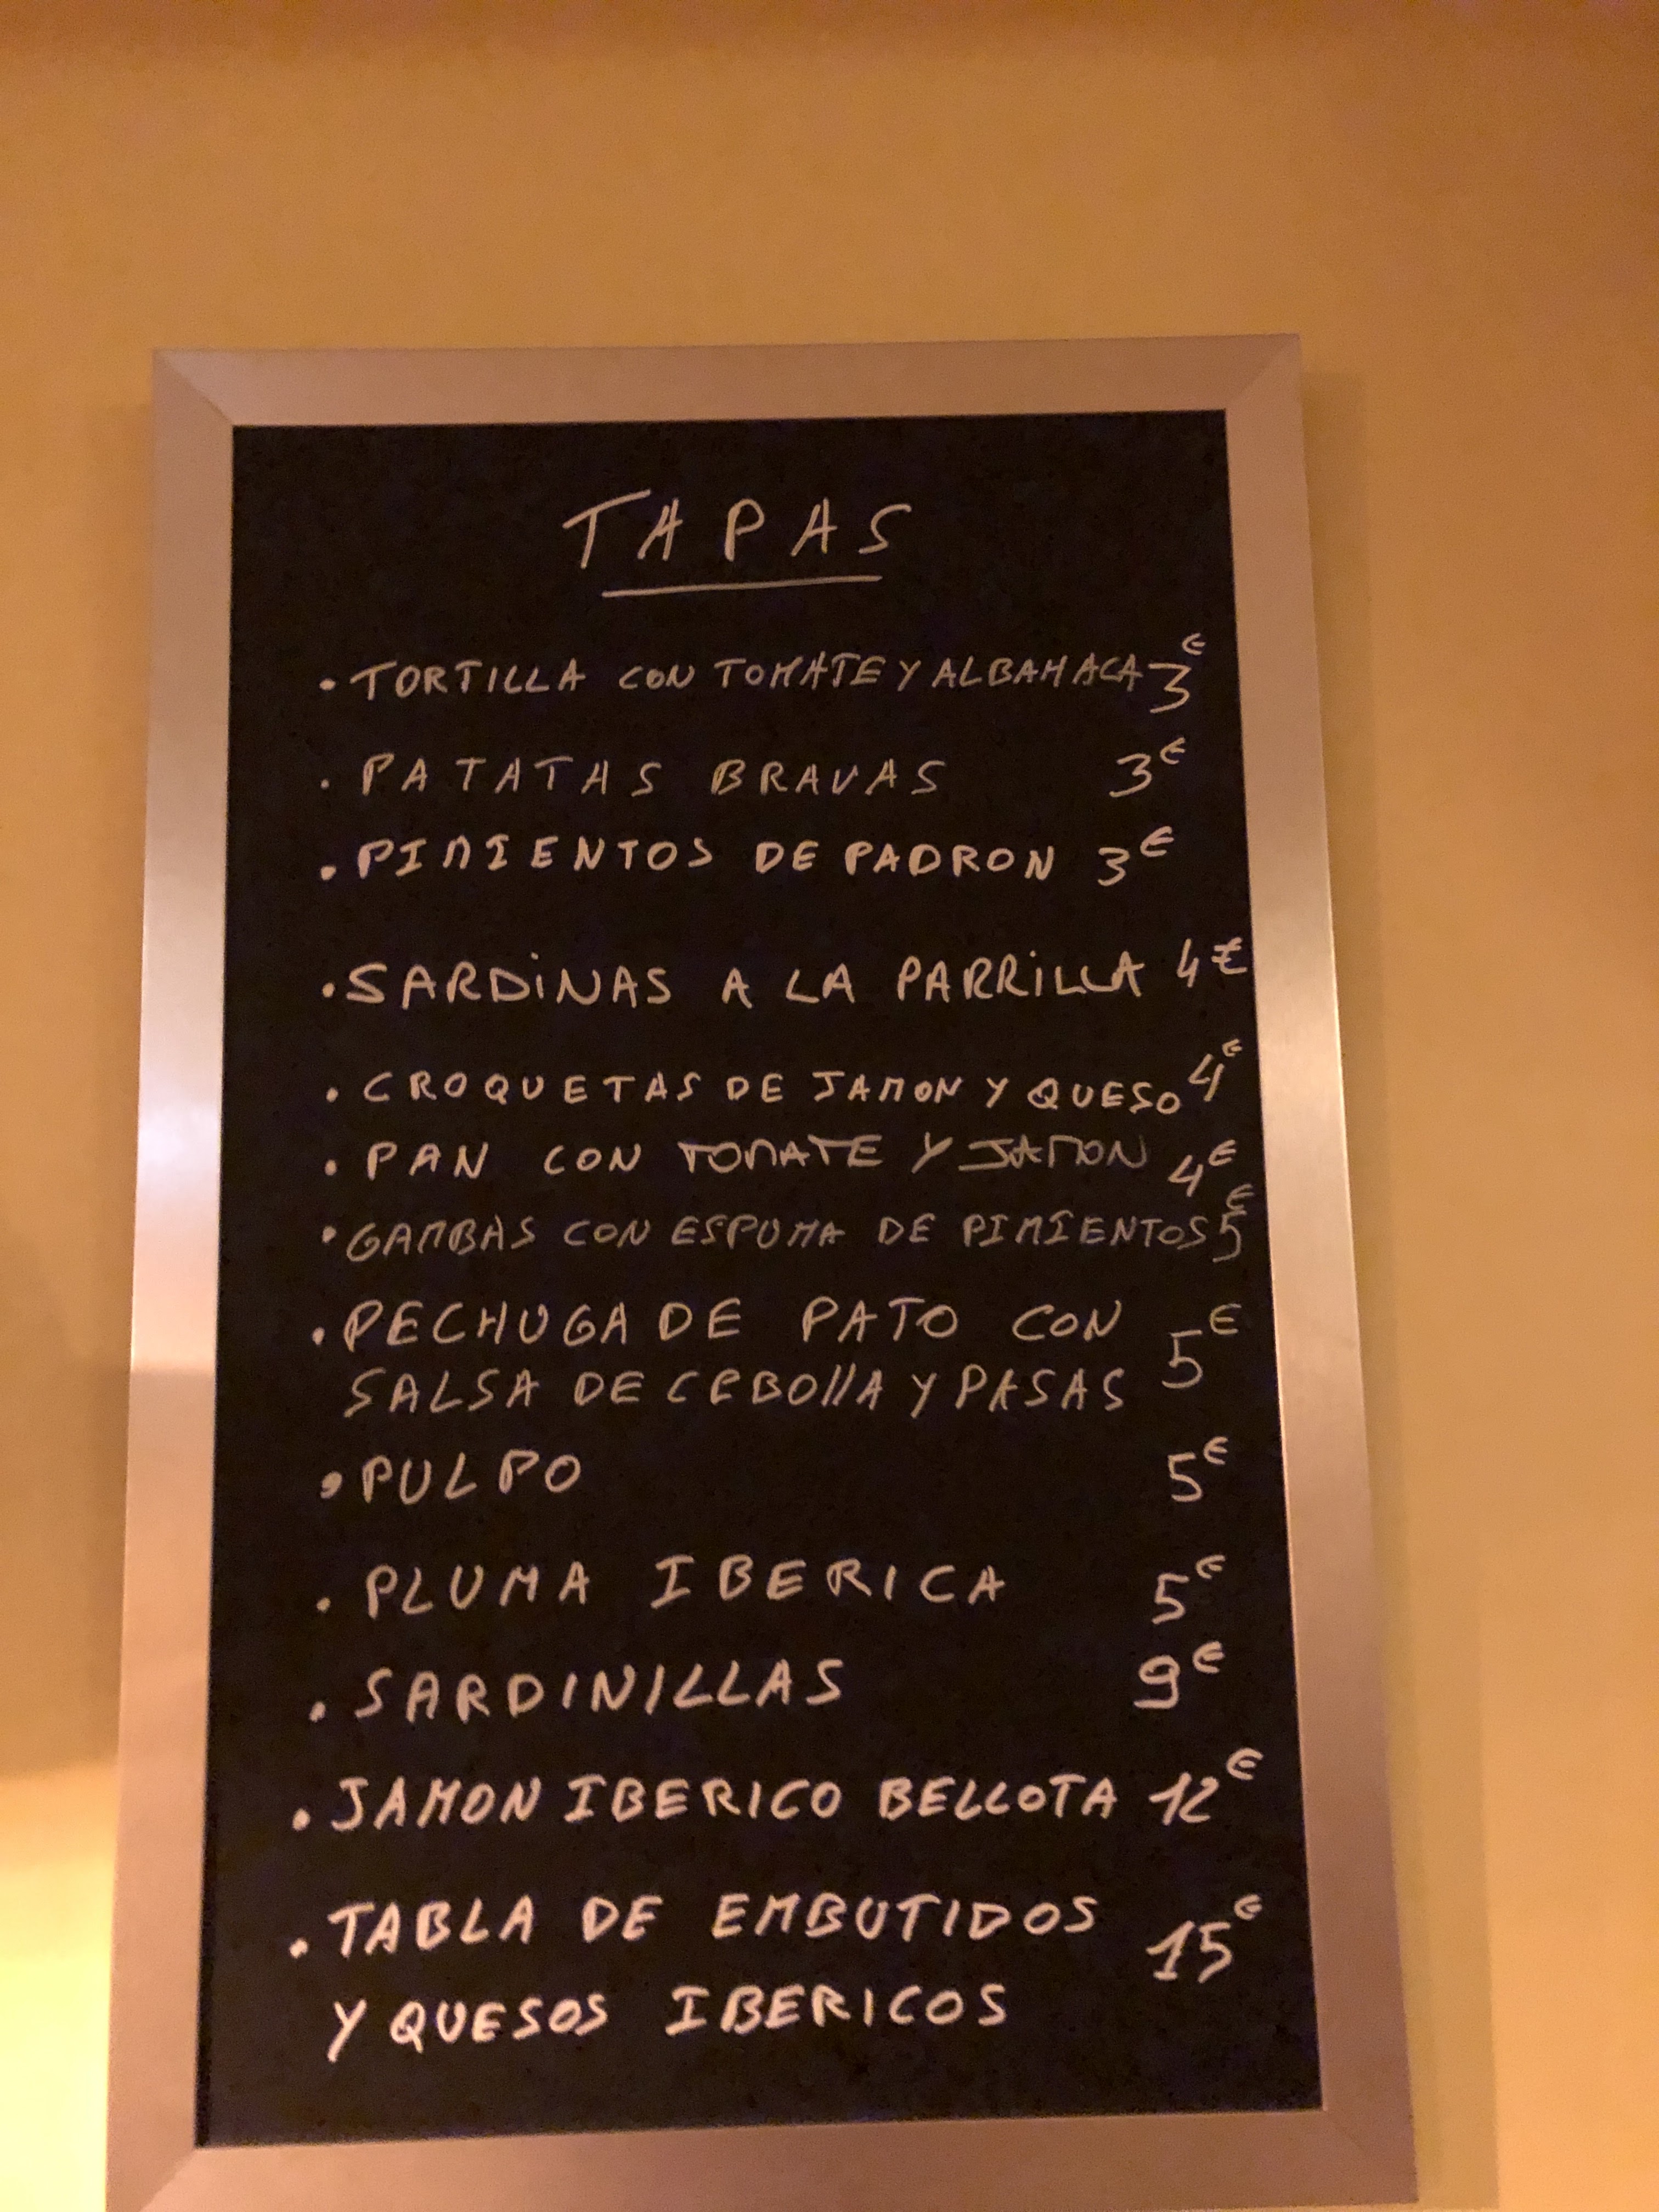 TAPAS
• TORTILLA CON TOMATE Y ALBAHACA 3€
• PATATAS BRAVAS 3€
• PIMIENTOS DE PADRON 3€
• SARDINAS A LA PARRILLA 4€
• CROQUETAS DE JAMON Y QUESO 4€
• PAN CON TOMATE Y JAMON 4€
• GAMBAS CON ESPUMA DE PIMIENTOS 5€
• PECHUGA DE PATO CON 5€
SALSA DE CEBOllA Y PASAS
• PULPO 5€
• PLUMA IBERICA 5€
• SARDINILLAS 9€
• JAMON IBERICO BELLOTA 12€
• TABLA DE EMBUTIDOS 15€
Y QUESOS IBERICOS